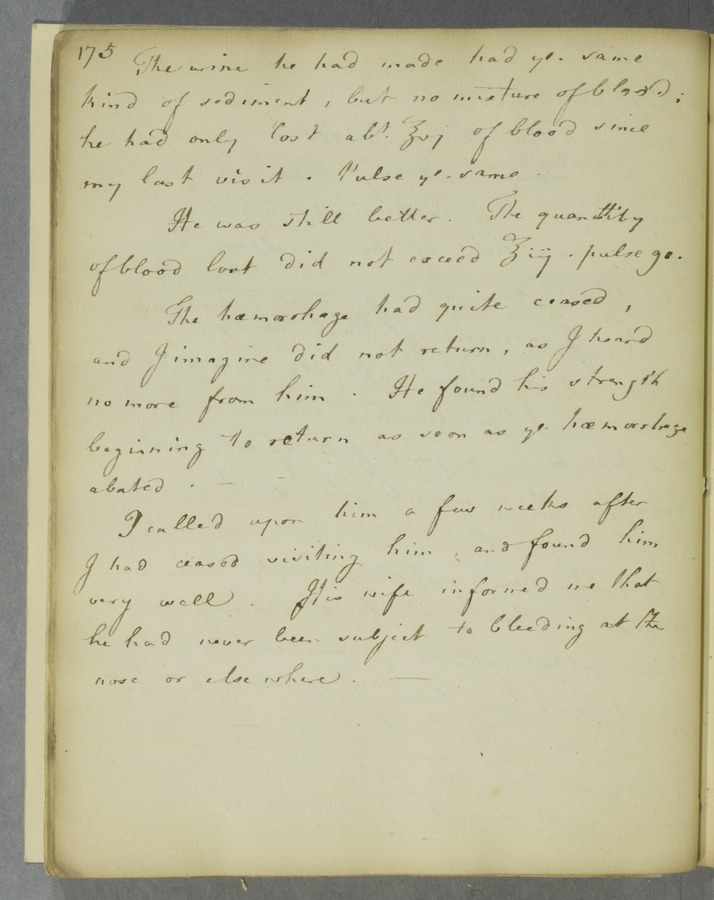 175 The urine he had made had ye. same
kind of sediment, but no mixture of blood;
he had only lost abt. ℥vj of blood since
my last visit. Pulse ye. same.
He was still better. The quantity
of blood lost did not exceed ℥iij. pulse 90.
The hæmorrhage had quite ceased,
and I imagine did not return, as I heard
no more from him. He found his strength
beginning to return as soon as ye. hæmorrhage
abated. — —
I called upon him a few weeks after
I had ceased visiting him, and found him
very well. His wife informed me that
he had never been subject to bleeding at the
nose or elsewhere. —